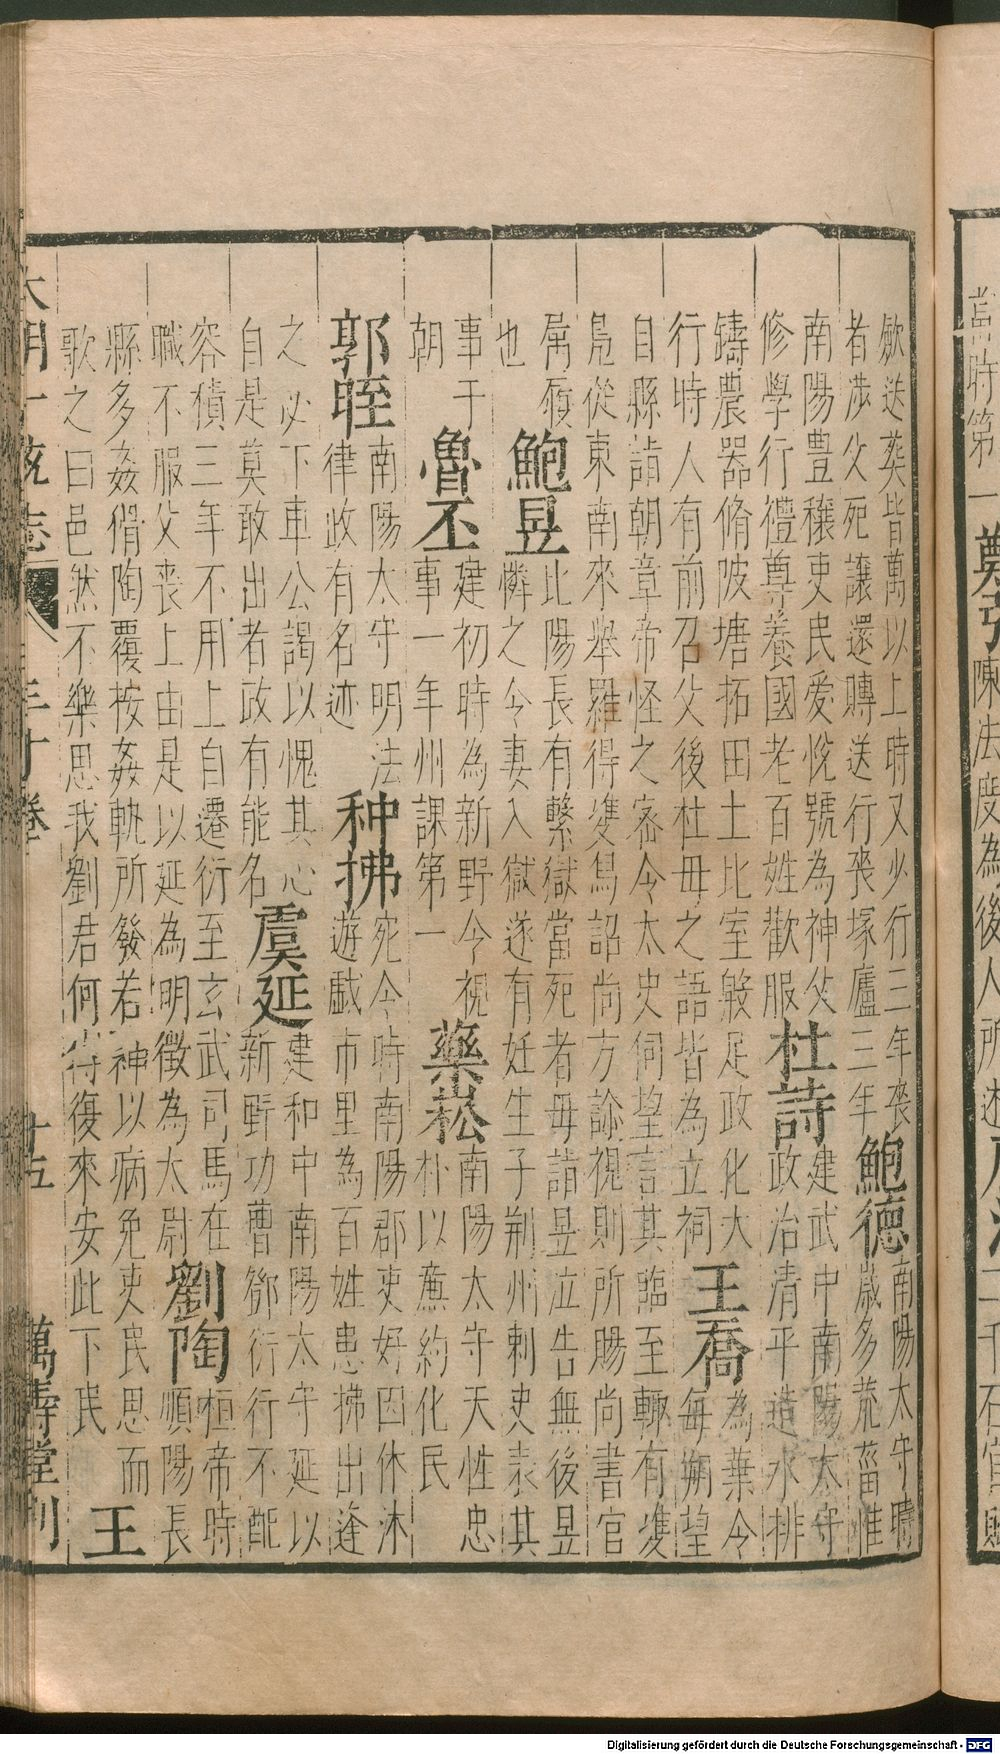 當時第一
陳法度為後人所述
二千石
斂送葬皆萬以上時又少行三年喪
者涉父死讓還賻送行喪塚廬三年
鮑德
南陽太守時
歲多荒葘惟
南陽豊穰吏民愛悅號為神父
修學行禮尊養國老百姓歡服
杜詩
建武中南陽太守
政治清平造水排
鑄農器脩陂塘拓田土比室殷足政化大
行時人有前召父後杜毋之語皆為立祠
王喬
為葉令
毎朔望
自縣詣朝章帝怪之宻令太史伺望言其臨至輙有䨇
鳬從東南來舉羅得䨇舄詔尚方診視則所賜尚書官
屬履
也
鮑昱
比陽長有繫獄當死者毋詣昱泣告無後昱
憐之令妻入獄遂有妊生子荆州刺史表其
事于
朝
魯丕
建初時為新野令視
事一年州課第一
藥崧
南陽太守天性忠
朴以亷約化民
郭晊
南陽太守明法
律政有名迹
种拂
宛令時南陽郡吏好因休沐
遊戱市里為百姓患拂出逢
之必下車公謁以愧其心
自是莫敢出者政有能名
虞延
建和中南陽太守延以
新野功曹鄧衍行不配
容積三年不用上自遷衍至玄武司馬在
職不服父喪上由是以延為明徵為太尉
劉陶
桓帝時
順陽長
縣多姦猾陶覆按姦軌所發若神以病免吏民思而
歌之曰邑然不樂思我劉君何時復來安此下民
王
大明一統志 三十卷 十五 萬壽堂刋
Digitalisierung gefördert durch die Deutsche Forschungsgemeinschaft - DFG